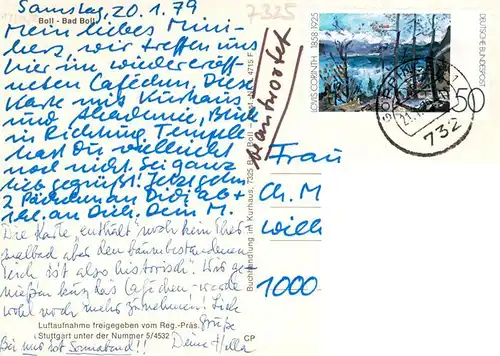 Samstag, 20.1.79
7325
Boll - Bad Boll
Mein liebes Mini-
herz, wir treffen uns
hier im wiedereröff-
neten Cafédien, Diese
Karte mit Kurhaus
und Akademie, Blick
in Richtung Tempelh.
hast Du vielleicht
noch nicht. Sei ganz
lieb gegrüßt! Jetzt gehn
2 Päckchen an Didi ab +
1 kl. an Dich. Dein M.
Die Karte enthält wohl kein Ther-
malbad aber den baumbestandenen
Teich ist also "historisch". Wir ge-
nießen kurz das Caféchen - werde
wohl noch mehr zunehmen! Lieb
Grüße
Bei uns ist Sonnabend!! Deine Hella
Luftaufnahme freigegeben vom Reg.-Präs.
Stuttgart unter der Nummer 5/4532
CP
Buchhandlung im Kurhaus, 7325 Bad Boll
4715 E
beantwortet
LOVIS CORINTH 1858-1925
DEUTSCHE BUNDESPOST
50
732
Frau
Ch. M
Wilh
1000